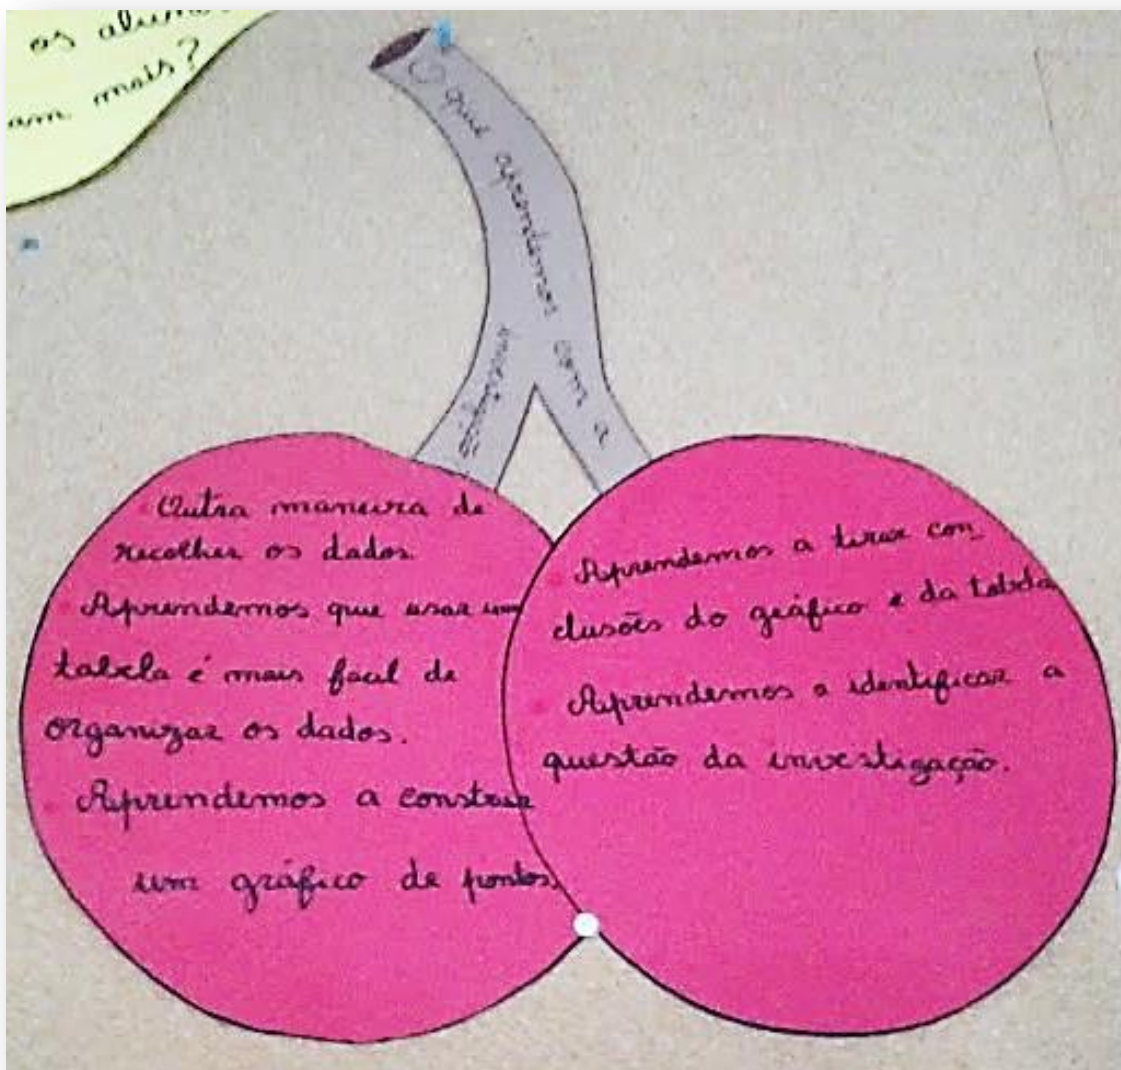 os alun
am mais?
O que aprendemos com a
investigação
Outra maneira de
recolher os dados.
Aprendemos que usar uma
tabela é mais facil de
organizar os dados.
Aprendemos a construir
um gráfico de pontos
Aprendemos a tirar con_
clusões do gráfico e da tabela
Aprendemos a identificar a
questão da investigação.